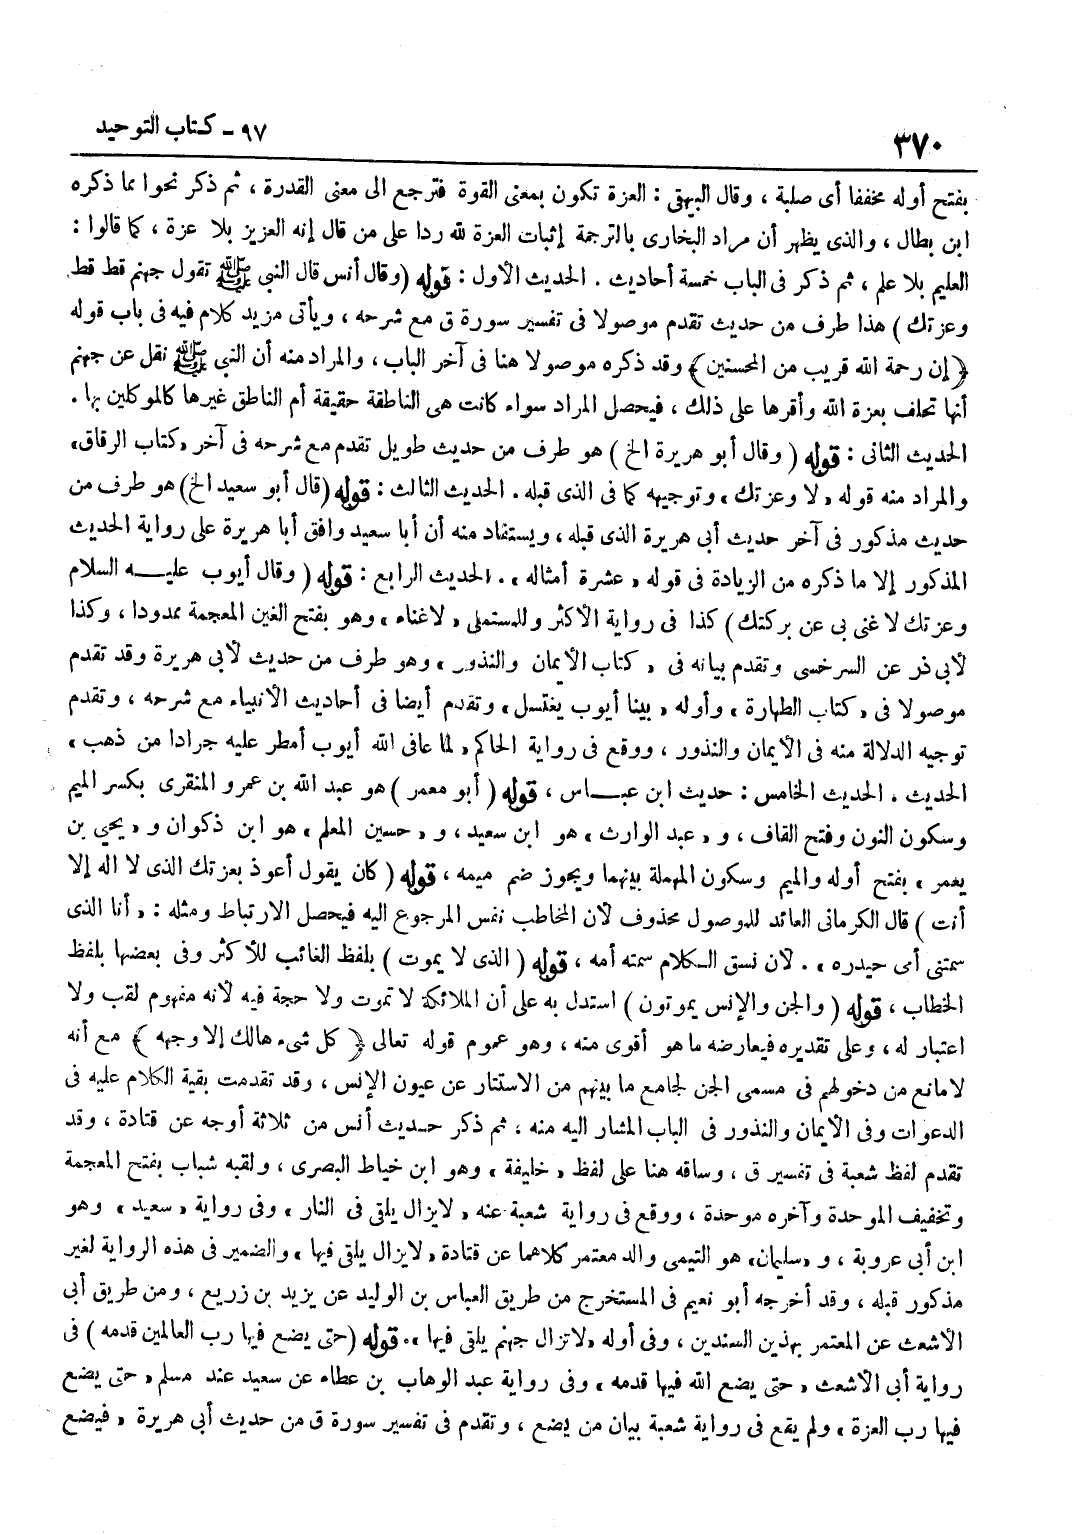 ٣٧٠
٩٧ - كتاب التوحيد
بفتح أوله مخففا أى صلبة ، وقال البيهقى : العزة تكون بمعنى القوة فترجع الى معنى القدرة ، ثم ذكر نحوا مما ذكره
ابن بطال ، والذى يظهر أن مراد البخارى بالترجمة إثبات العزة لله ردا على من قال إنه العزيز بلا عزة ، كما قالوا :
العليم بلا علم ، ثم ذكر فى الباب خمسة أحاديث . الحديث الأول : قوله (وقال أنس قال النبى ﷺ تقول جهنم قط قط
وعزتك ) هذا طرف من حديث تقدم موصولا فى تفسير سورة ق مع شرحه ، ويأتى مزيد كلام فيه فى باب قوله
﴿إن رحمة الله قريب من المحسنين﴾ وقد ذكره موصولا هنا فى آخر الباب ، والمراد منه أن النبى ﷺ نقل عن جهنم
أنها تحلف بعزة الله وأقرها على ذلك ، فيحصل المراد سواء كانت هى الناطقة حقيقة أم الناطق غيرها كالموكلين بها .
الحديث الثانى : قوله ( وقال أبو هريرة الخ ) هو طرف من حديث طويل تقدم مع شرحه فى آخر «كتاب الرقاق»
والمراد منه قوله « لا وعزتك » وتوجيهه كما فى الذى قبله . الحديث الثالث : قوله (قال أبو سعيد الخ) هو طرف من
حديث مذكور فى آخر حديث أبى هريرة الذى قبله ، ويستفاد منه أن أبا سعيد وافق أبا هريرة على رواية الحديث
المذكور إلا ما ذكره من الزيادة فى قوله « عشرة أمثاله » . الحديث الرابع : قوله ( وقال أيوب عليه السلام
وعزتك لا غنى بى عن بركتك ) كذا فى رواية الأكثر وللمستملى « لاغناء » وهو بفتح الغين المعجمة ممدودا ، وكذا
لأبى ذر عن السرخسى وتقدم بيانه فى « كتاب الأيمان والنذور » وهو طرف من حديث لأبى هريرة وقد تقدم
موصولا فى « كتاب الطهارة » وأوله « بينا أيوب يغتسل » وتقدم أيضا فى أحاديث الأنبياء مع شرحه ، وتقدم
توجيه الدلالة منه فى الأيمان والنذور ، ووقع فى رواية الحاكم « لما عافى الله أيوب أمطر عليه جرادا من ذهب »
الحديث . الحديث الخامس : حديث ابن عباس ، قوله ( أبو معمر ) هو عبد الله بن عمرو المنقرى بكسر الميم
وسكون النون وفتح القاف ، و « عبد الوارث » هو ابن سعيد ، و « حسين المعلم » هو ابن ذكوان و « يحيى بن
يعمر » بفتح أوله والميم وسكون المهملة بينهما ويجوز ضم ميمه ، قوله ( كان يقول أعوذ بعزتك الذى لا اله إلا
أنت ) قال الكرمانى العائد للموصول محذوف لأن المخاطب نفس المرجوع اليه فيحصل الارتباط ومثله : « أنا الذى
سمتنى أمى حيدره » . لأن نسق الكلام سمته أمه ، قوله ( الذى لا يموت ) بلفظ الغائب للأكثر وفى بعضها بلفظ
الخطاب ، قوله ( والجن والإنس يموتون ) استدل به على أن الملائكة لا تموت ولا حجة فيه لأنه مفهوم لقب ولا
اعتبار له ، وعلى تقديره فيعارضه ما هو أقوى منه ، وهو عموم قوله تعالى ﴿ كل شىء هالك إلا وجهه ﴾ مع أنه
لا مانع من دخولهم فى مسمى الجن لجامع ما بينهم من الاستتار عن عيون الإنس ، وقد تقدمت بقية الكلام عليه فى
الدعوات وفى الأيمان والنذور فى الباب المشار اليه منه ، ثم ذكر حديث أنس من ثلاثة أوجه عن قتادة ، وقد
تقدم لفظ شعبة فى تفسير ق ، وساقه هنا على لفظ « خليفة » وهو ابن خياط البصرى ، ولقبه شباب بفتح المعجمة
وتخفيف الموحدة وآخره موحدة ، ووقع فى رواية شعبة عنه « لايزال يلقى فى النار » وفى رواية « سعيد » وهو
ابن أبى عروبة ، و «سليمان» هو التيمى والد معتمر كلاهما عن قتادة « لايزال يلقى فيها » والضمير فى هذه الرواية لغير
مذكور قبله ، وقد أخرجه أبو نعيم فى المستخرج من طريق العباس بن الوليد عن يزيد بن زريع ، ومن طريق أبى
الأشعث عن المعتمر بهذين السندين ، وفى أوله «لاتزال جهنم يلقى فيها » . قوله (حتى يضع فيها رب العالمين قدمه ) فى
رواية أبى الاشعث « حتى يضع الله فيها قدمه » وفى رواية عبد الوهاب بن عطاء عن سعيد عند مسلم « حتى يضع
فيها رب العزة » ولم يقع فى رواية شعبة بيان من يضع ، وتقدم فى تفسير سورة ق من حديث أبى هريرة « فيضع